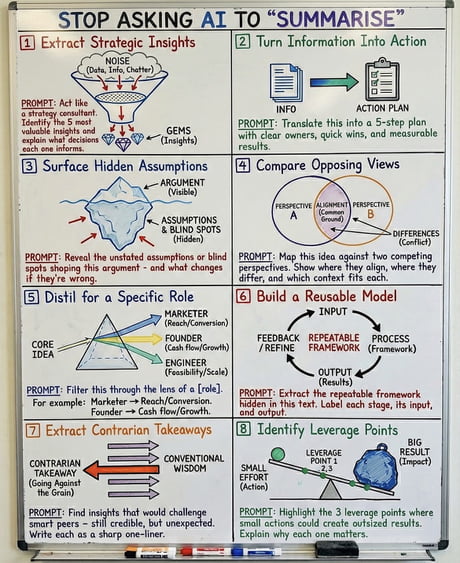 STOP ASKING AI TO "SUMMARISE"
1 Extract Strategic Insights
NOISE
(Data, Info, Chatter)
PROMPT: Act like
a strategy consultant.
Identify the 5 most
valuable insights and
explain what decisions
each one informs.
GEMS
(Insights)
2 Turn Information Into Action
INFO
ACTION PLAN
PROMPT: Translate this into a 5-step plan
with clear owners, quick wins, and measurable
results.
3 Surface Hidden Assumptions
ARGUMENT
(Visible)
ASSUMPTIONS
& BLIND SPOTS
(Hidden)
PROMPT: Reveal the unstated assumptions or blind
spots shaping this argument - and what changes
if they're wrong.
4 Compare Opposing Views
PERSPECTIVE
A
ALIGNMENT
(Common
Ground)
PERSPECTIVE
B
DIFFERENCES
(Conflict)
PROMPT: Map this idea against two competing
perspectives. Show where they align, where they
differ, and which context fits each.
5 Distil for a Specific Role
CORE
IDEA
MARKETER
(Reach/Conversion)
FOUNDER
(Cash flow/Growth)
ENGINEER
(Feasibility/Scale)
PROMPT: Filter this through the lens of a [role].
For example: Marketer → Reach/Conversion.
Founder → Cash flow/Growth.
6 Build a Reusable Model
INPUT
FEEDBACK
/ REFINE
REPEATABLE
FRAMEWORK
PROCESS
(Framework)
OUTPUT
(Results)
PROMPT: Extract the repeatable framework
hidden in this text. Label each stage, its input,
and output.
7 Extract Contrarian Takeaways
CONTRARIAN
TAKEAWAY
(Going Against
the Grain)
CONVENTIONAL
WISDOM
PROMPT: Find insights that would challenge
smart peers – still credible, but unexpected.
Write each as a sharp one-liner.
8 Identify Leverage Points
SMALL
EFFORT
(Action)
LEVERAGE
POINT 1
2, 3
BIG
RESULT
(Impact)
PROMPT: Highlight the 3 leverage points where
small actions could create outsized results.
Explain why each one matters.